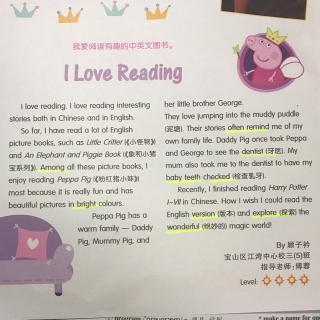 我爱阅读有趣的中英文图书。
I Love Reading
I love reading. I love reading interesting
stories both in Chinese and in English.
So far, I have read a lot of English
picture books, such as Little Critter (《小怪物》)
and An Elephant and Piggie Book (《象和小猪
宝系列》). Among all these picture books, I
enjoy reading Peppa Pig (《粉红猪小妹》)
most because it is really fun and has
beautiful pictures in bright colours.
Peppa Pig has a
warm family — Daddy
Pig, Mummy Pig, and
her little brother George.
They love jumping into the muddy puddle
(泥塘). Their stories often remind me of my
own family life. Daddy Pig once took Peppa
and George to see the dentist (牙医). My
mum also took me to the dentist to have my
baby teeth checked (检查乳牙).
Recently, I finished reading Harry Potter
I-VII in Chinese. How I wish I could read the
English version (版本) and explore (探索) the
wonderful (绝妙的) magic world!
By 顾子衿
宝山区江湾中心校三(5)班
指导老师：傅蓉
Level: